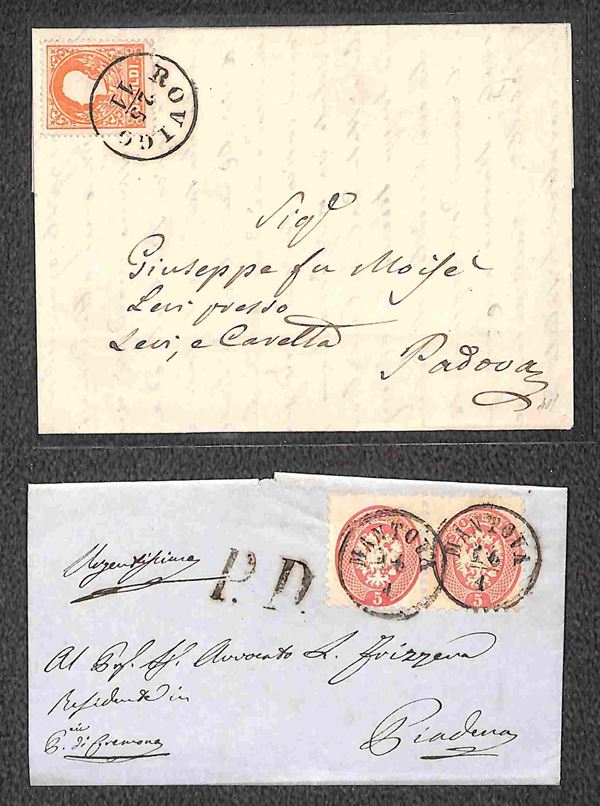 LDI
ROVIGO
25
11
Sig.r
Giuseppe fu Moisè
Levi presso
Levi, e Cavetta
Padova
Urgentissima
P.D.
MANTOVA
1
MANTOVA
1
5
5
Al Avvocato L. Frizzera
Residente in
P. di Cremona
Piadena